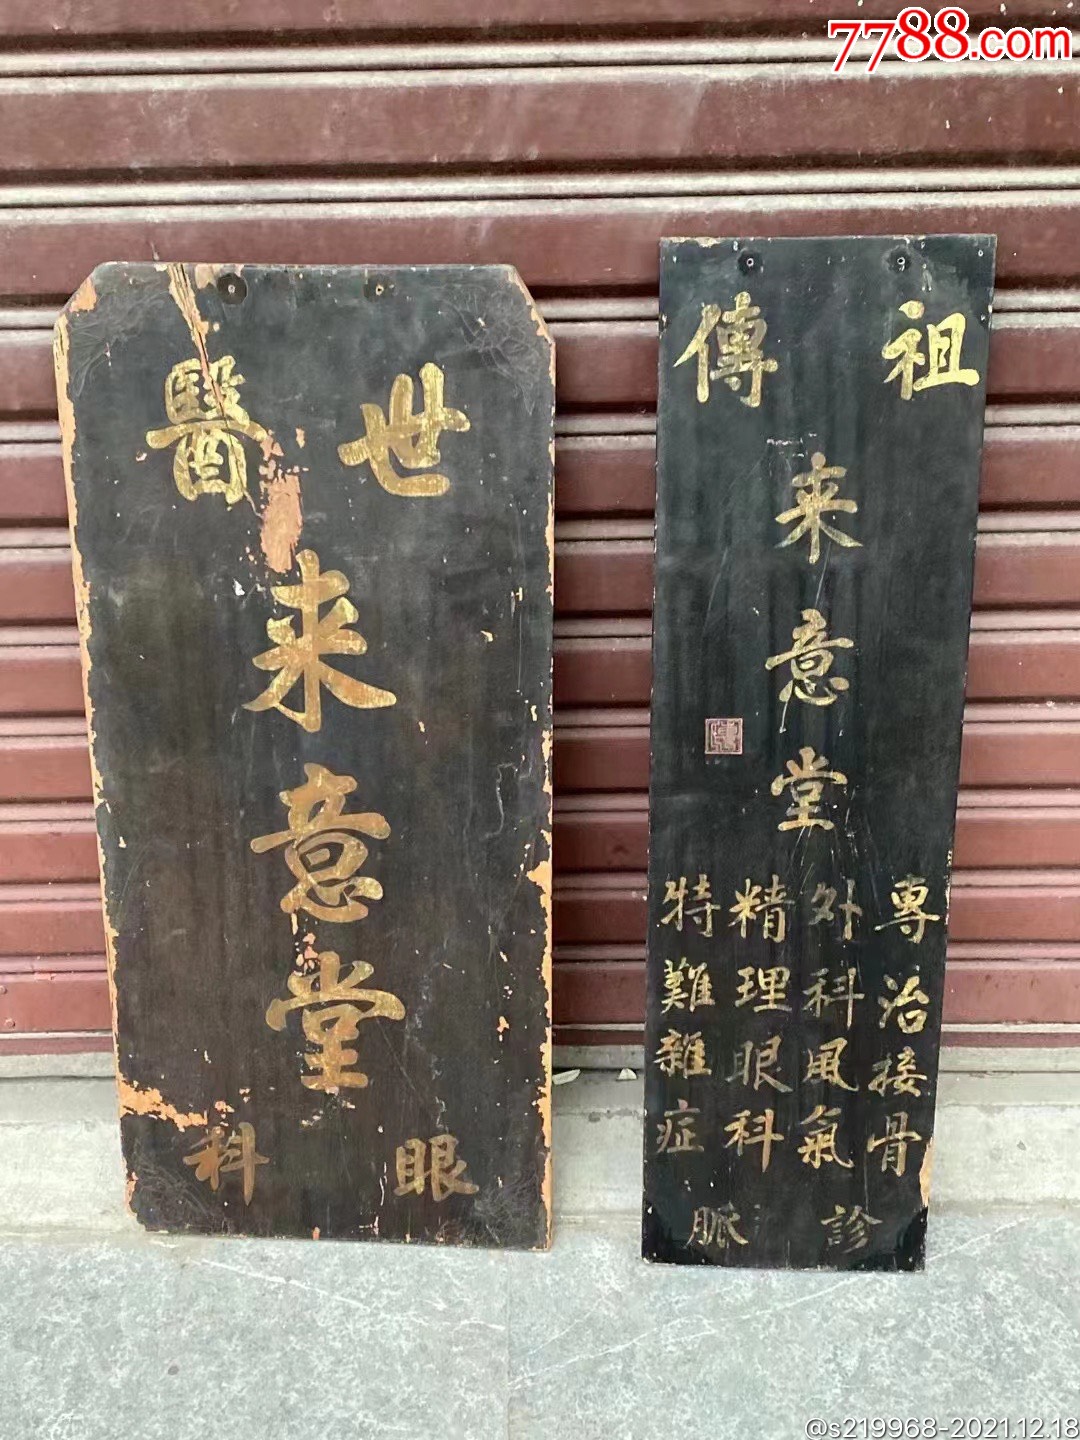 7788.com
世醫
来意堂
眼科
祖傳
来意堂
專治接骨
外科風氣
精理眼科
特難雜症
診脈
@s219968-2021.12.18